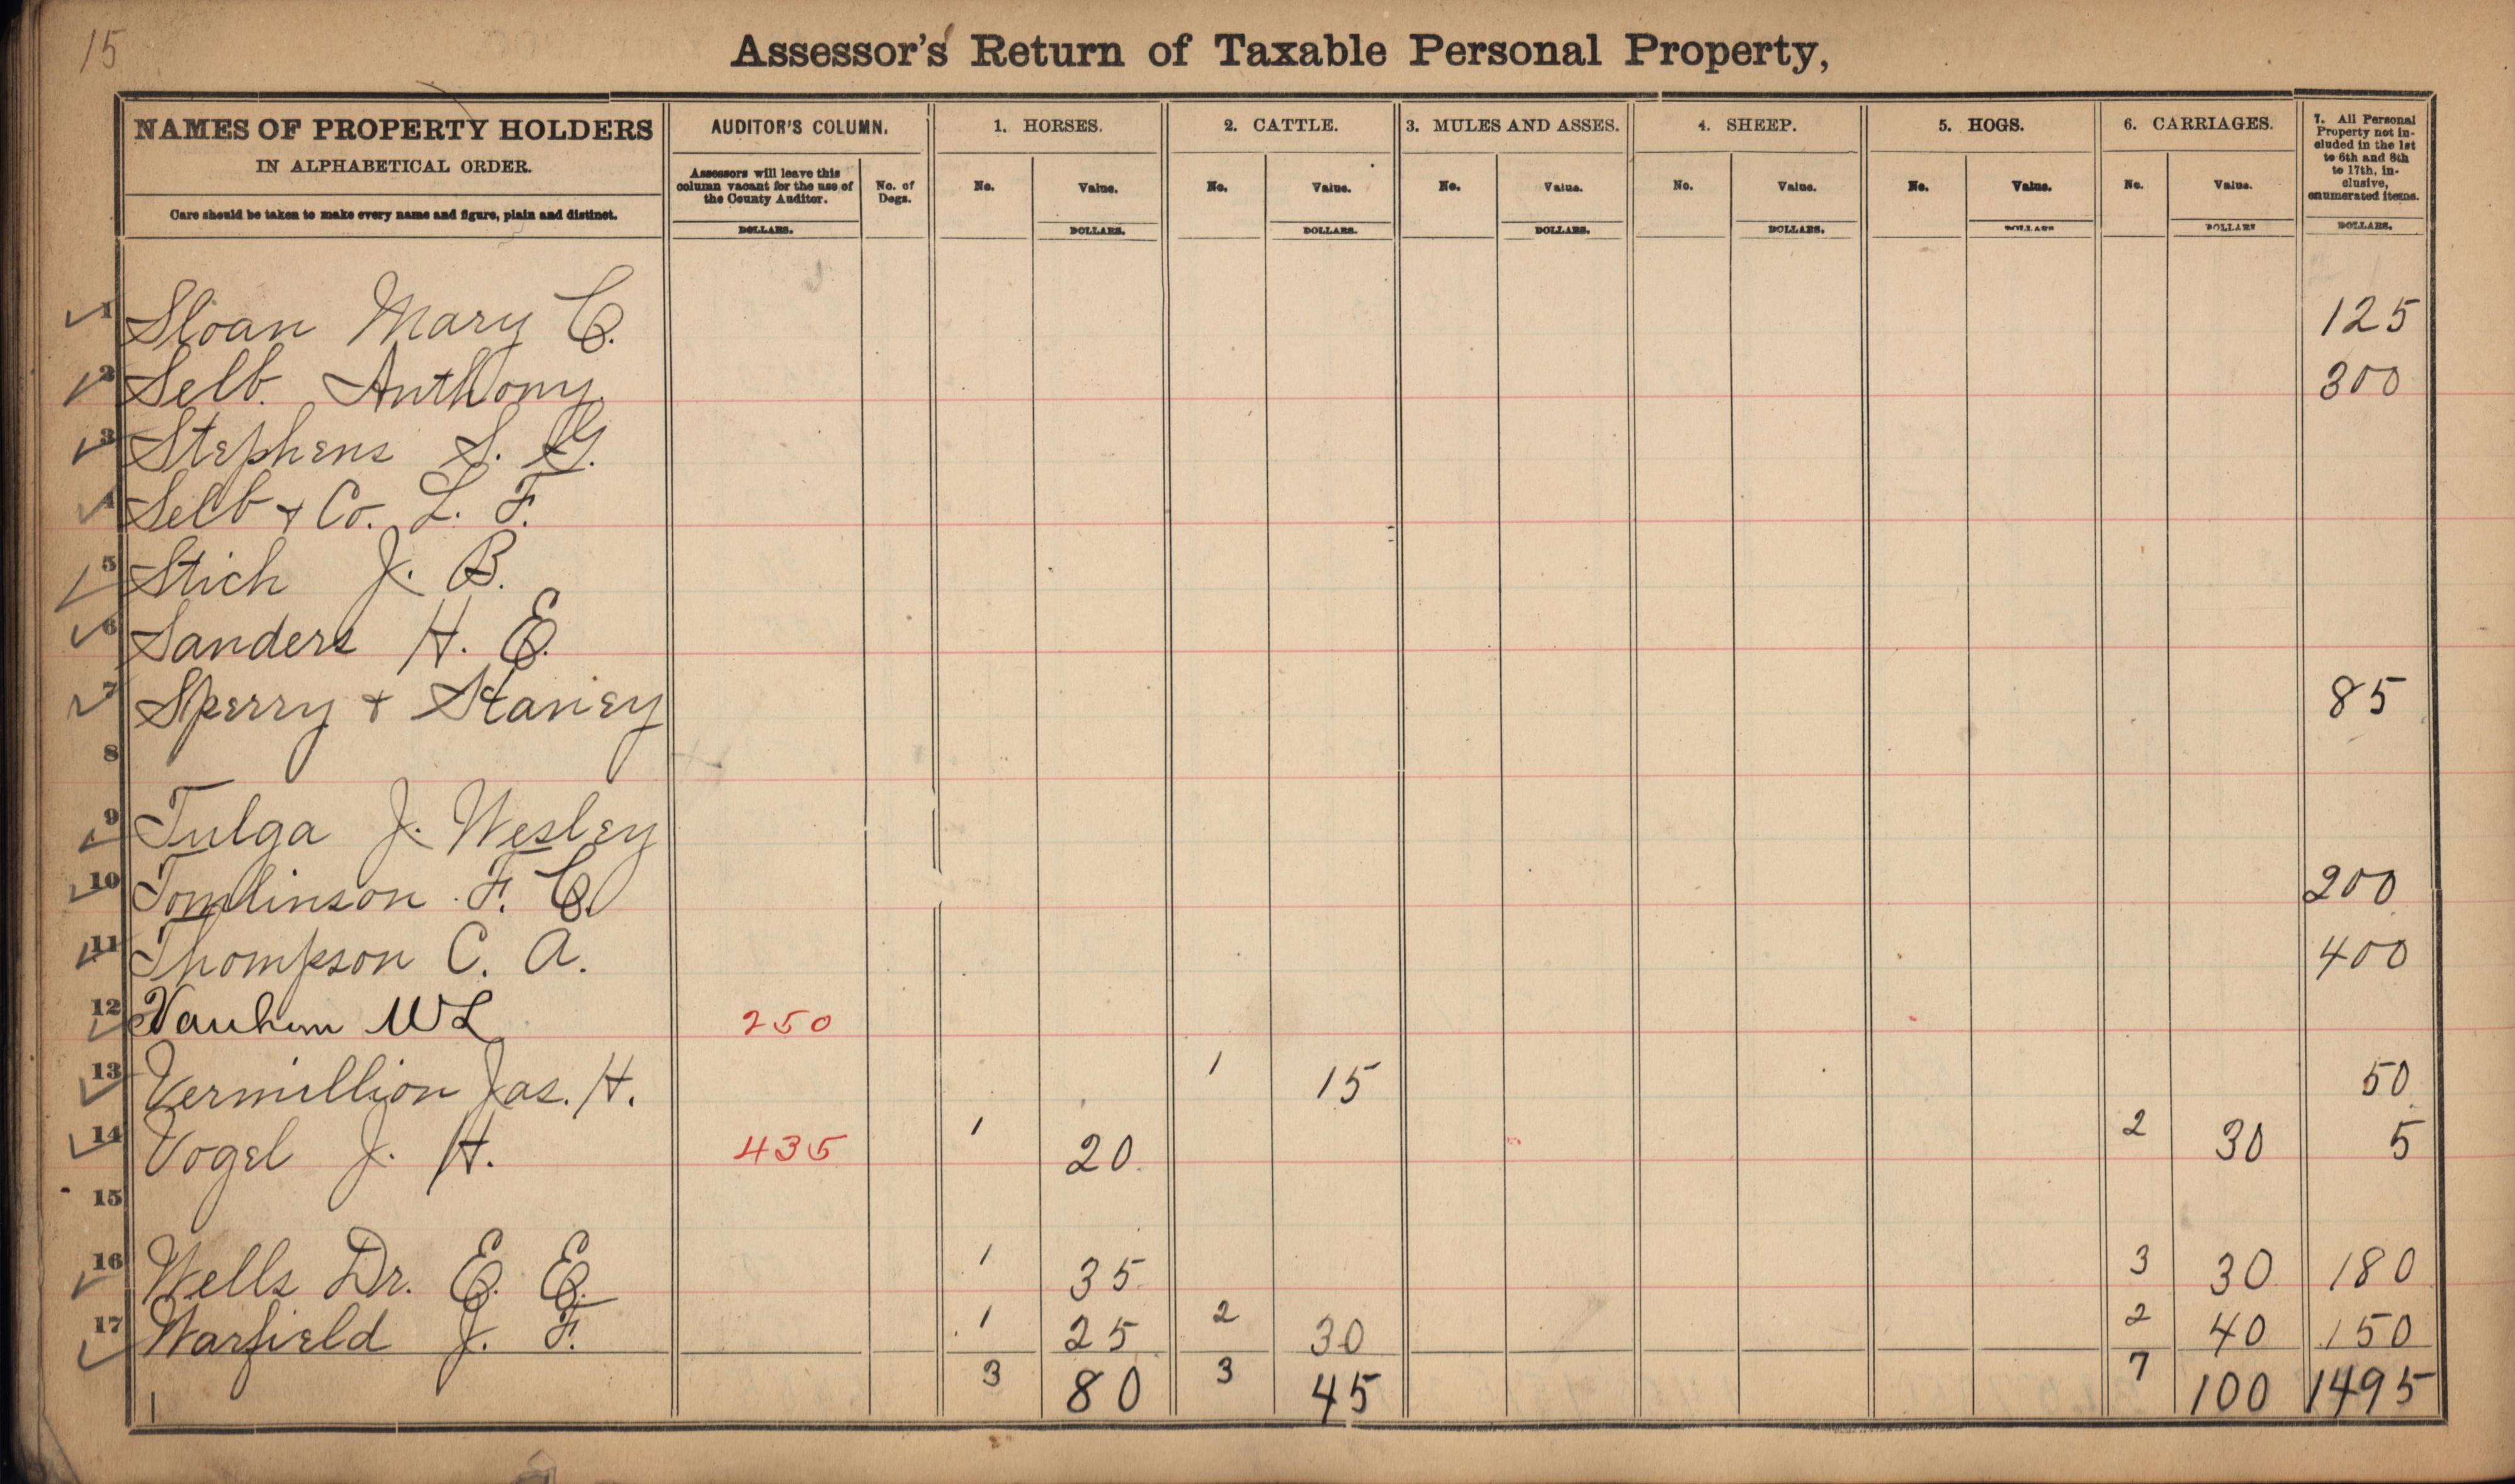 15
Assessor's Return of Taxable Personal Property,
NAMES OF PROPERTY HOLDERS
IN ALPHABETICAL ORDER.
Care should be taken to make every name and figure, plain and distinct.
AUDITOR'S COLUMN.
Assessors will leave this
column vacant for the use of
the County Auditor.
DOLLARS.
No. of
Dogs.
1. HORSES.
No. Value.
DOLLARS.
2. CATTLE.
No. Value.
DOLLARS.
3. MULES AND ASSES.
No. Value.
DOLLARS.
4. SHEEP.
No. Value.
DOLLARS.
5. HOGS.
No. Value.
DOLLARS
6. CARRIAGES.
No. Value.
DOLLARS
7. All Personal
Property not in-
cluded in the 1st
to 6th and 8th
to 17th, in-
clusive,
enumerated items.
DOLLARS.
1 Sloan Mary C. 125
2 Selb. Anthony. 300
3 Stephens S. G.
4 Selb + Co. L. F.
5 Stich J. B.
6 Sanders H. E.
7 Sperry + Staney 85
8
9 Tulga J. Wesley
10 Tomlinson F. C. 200
11 Thompson C. A. 400
12 W L 250
13 Vermillion Jas. H. 1 15 50
14 Vogel J. H. 435 1 20 2 30 5
15
16 Wells Dr. E. E. 1 35 3 30 180
17 Warfield J. F. 1 25 2 30 2 40 150
3 80 3 45 7 100 1495